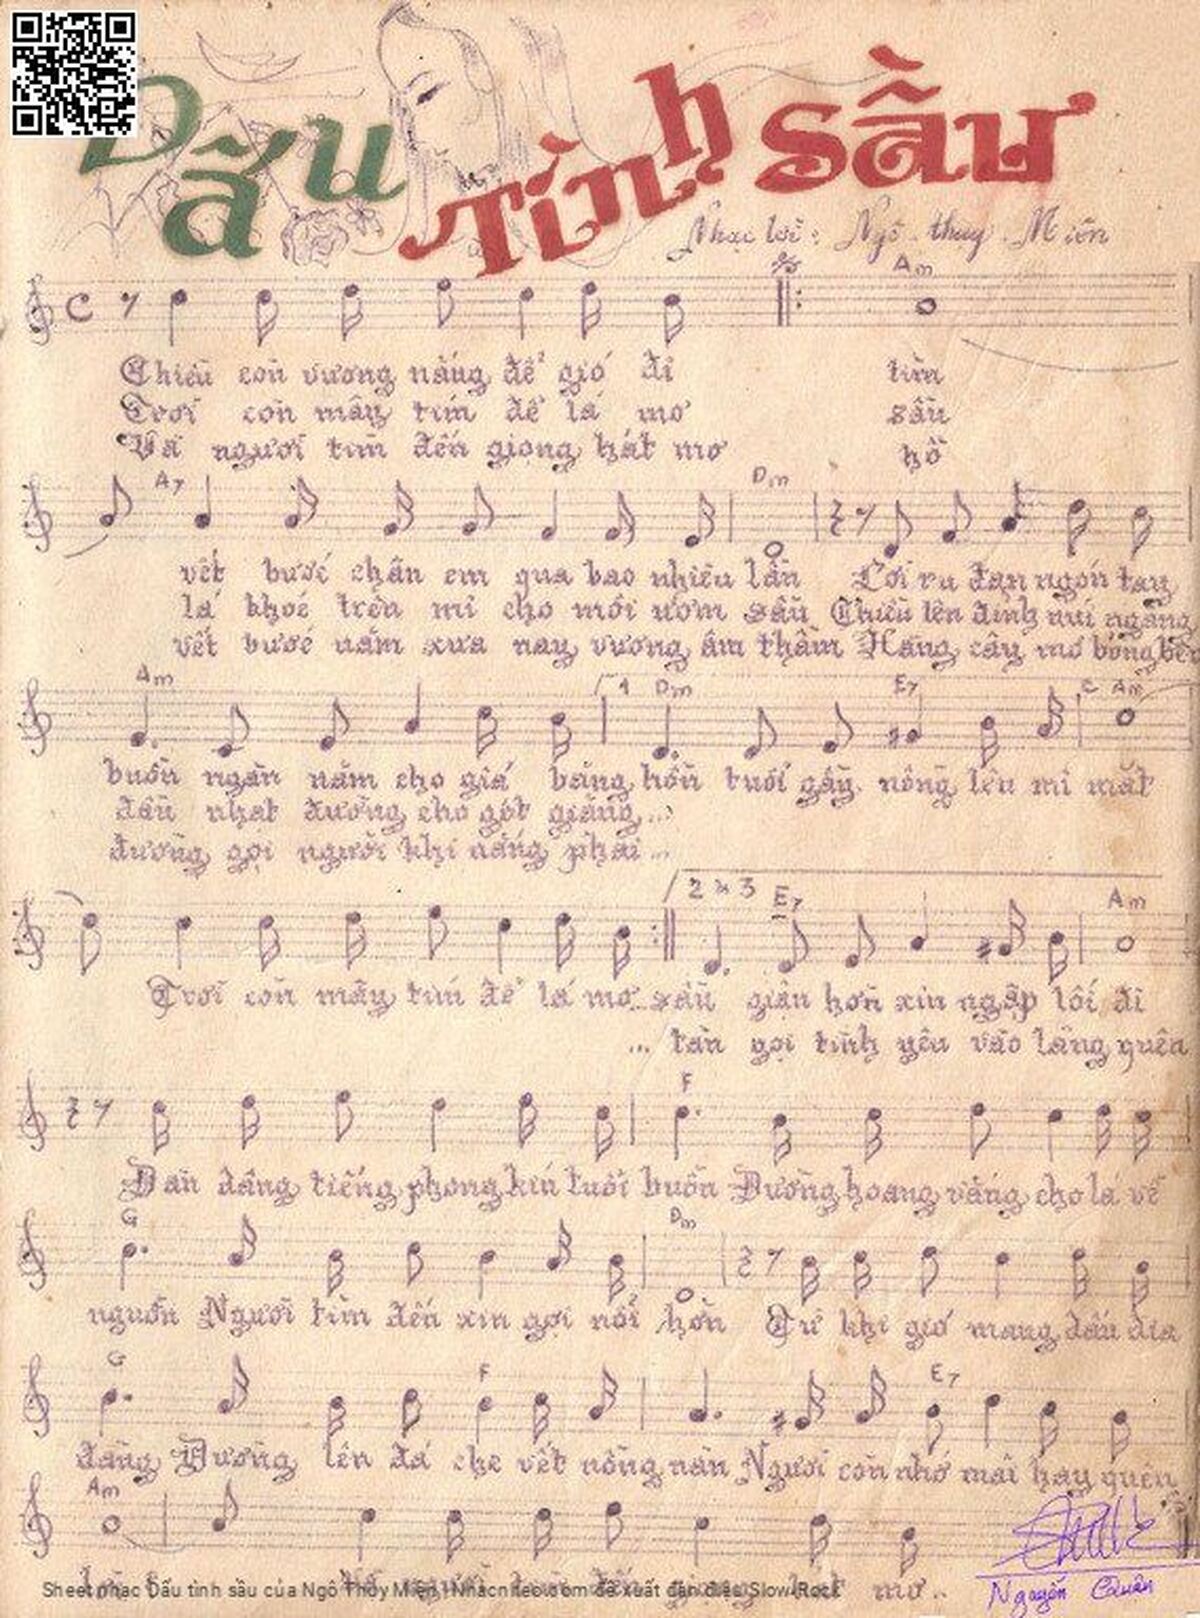 Dấu Tình Sầu
Nhạc lời: Ngô Thụy Miên
C Am
Chiều còn vương nắng để gió đi tìm
Trời còn mây tím để lá mơ sầu
Và người tìm đến giọng hát mơ hồ
A7 Dm
vết bước chân em qua bao nhiêu lần Lời ru đan ngón tay
lá khóc trên mi cho môi ươm sầu Chiều lên đỉnh núi ngàng
vết bước năm xưa nay vương âm thầm Hàng cây mơ bóng bên
Am 1 Dm E7 C Am
buồn ngàn năm cho giá băng hồn tuổi gầy nồng lên mi mắt
đầu nhạt đường cho gót giăng...
đường gọi người khi nắng phai...
2 & 3 E7 Am
Trời còn mây tím để lá mơ...sầu giận hờn xin ngập lối đi
... tàn gọi tình yêu vào lãng quên
F
Đàn dâng tiếng phong kín tuổi buồn Đường hoang vắng cho lá về
G Dm
nguồn Người tìm đến xin gọi nổi hờn Từ khi gió mang dấu địa
G F E7
đàng Đường lên đá che vết nồng nàn Người còn nhớ mãi hay quên
Am
lời mơ..
Nguyễn Quân
Sheet nhạc Dấu tình sầu của Ngô Thụy Miên | Nhacnheo.com đề xuất đàn điệu Slow Rock